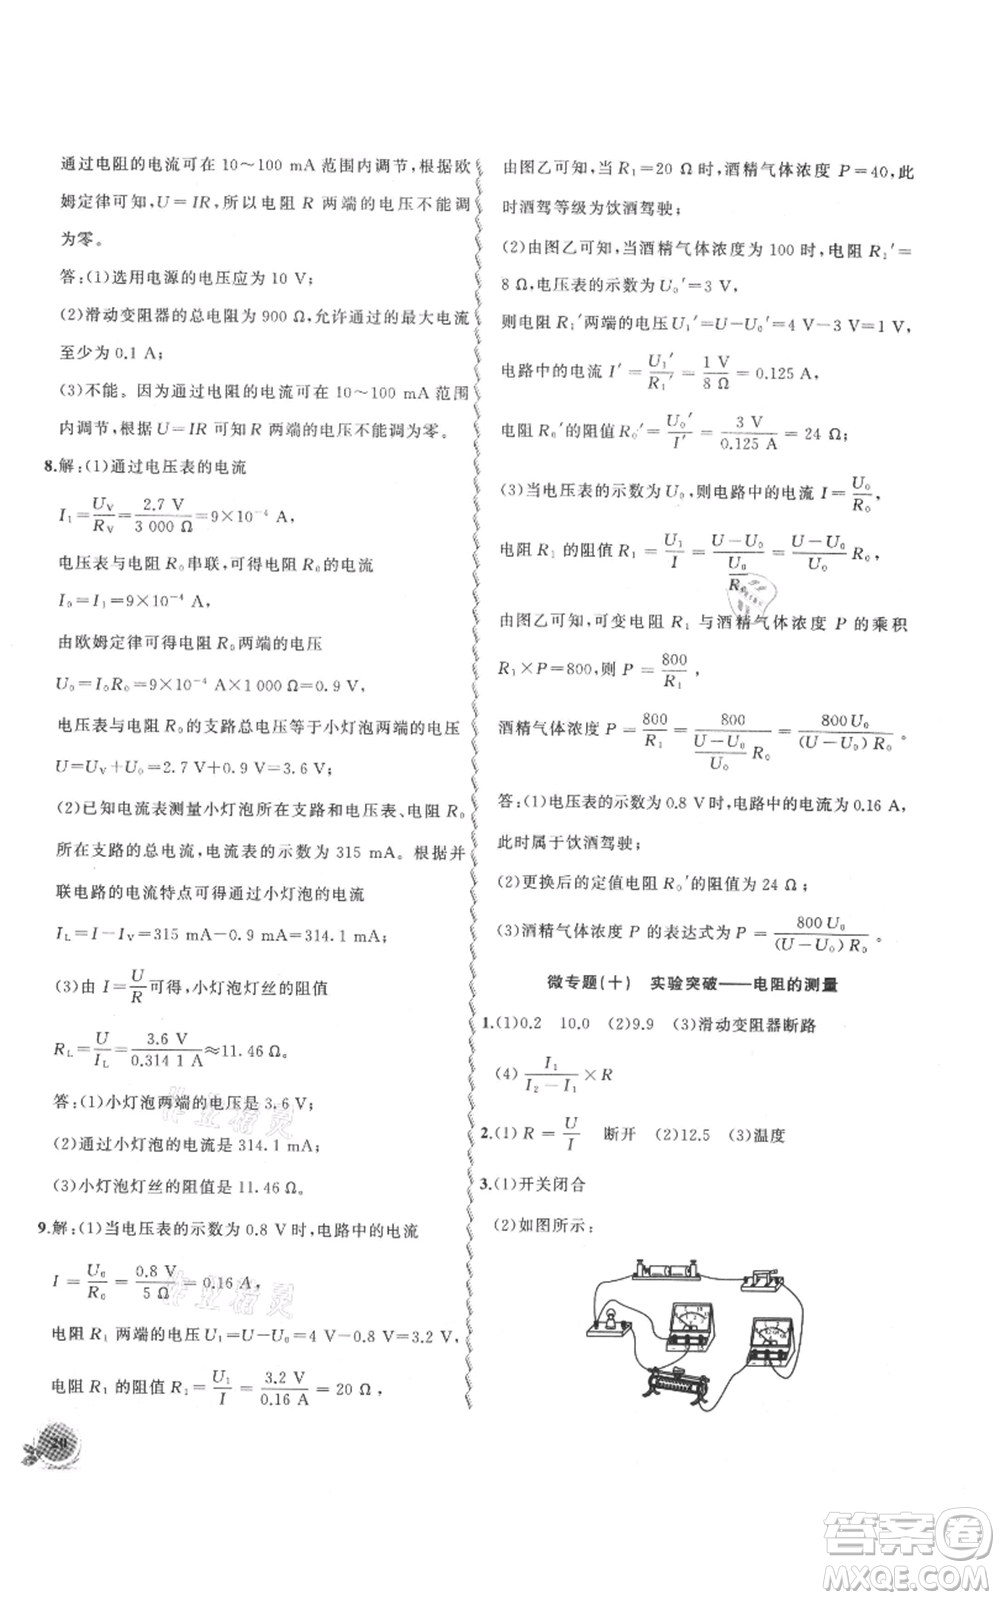 通过电阻的电流可在 10～100 mA 范围内调节,根据欧
姆定律可知,U=IR,所以电阻 R 两端的电压不能调
为零。
答:(1)选用电源的电压应为 10 V;
(2)滑动变阻器的总电阻为 900 Ω,允许通过的最大电流
至少为 0.1 A;
(3)不能。因为通过电阻的电流可在 10～100 mA 范围
内调节,根据 U=IR 可知 R 两端的电压不能调为零。
8.解:(1)通过电压表的电流
I₁=U_V/R_V=2.7 V/3 000 Ω=9×10⁻⁴ A,
电压表与电阻 R₀串联,可得电阻 R₀的电流
I₀=I₁=9×10⁻⁴ A,
由欧姆定律可得电阻 R₀两端的电压
U₀=I₀R₀=9×10⁻⁴ A×1 000 Ω=0.9 V,
电压表与电阻 R₀的支路总电压等于小灯泡两端的电压
U=U_V+U₀=2.7 V+0.9 V=3.6 V;
(2)已知电流表测量小灯泡所在支路和电压表、电阻 R₀
所在支路的总电流,电流表的示数为 315 mA。根据并
联电路的电流特点可得小灯泡的电流
I_L=I－I_V=315 mA－0.9 mA=314.1 mA;
(3)由 I=U/R可得,小灯泡灯丝的阻值
R_L=U/I_L=3.6 V/0.314 1 A≈11.46 Ω。
答:(1)小灯泡两端的电压是 3.6 V;
(2)通过小灯泡的电流是 314.1 mA;
(3)小灯泡灯丝的阻值是 11.46 Ω。
9.解:(1)当电压表的示数为 0.8 V时,电路中的电流
I=U₀/R₀=0.8 V/5 Ω=0.16 A,
电阻 R₁ 两端的电压 U₁=U－U₀=4 V－0.8 V=3.2 V,
电阻 R₁ 的阻值 R₁=U₁/I=3.2 V/0.16 A=20 Ω,
20
由图乙可知,当 R₁=20 Ω 时,酒精气体浓度 P=40,此
时酒驾等级为饮酒驾驶;
(2)由图乙可知,当酒精气体浓度为 100 时,电阻 R₁′=
8 Ω,电压表的示数为 U₀′=3 V,
则电阻 R₁′两端的电压 U₁′=U－U₀′=4 V－3 V=1 V,
电路中的电流 I′=U₁′/R₁′=1 V/8 Ω=0.125 A,
电阻 R₀′的阻值 R₀′=U₀′/I′=3 V/0.125 A=24 Ω;
(3)当电压表的示数为 U₀,则电路中的电流 I=U₀/R₀,
电阻 R₁ 的阻值 R₁=U₁/I=(U－U₀)/(U₀/R₀)=(U－U₀)/U₀ R₀,
由图乙可知,可变电阻 R₁ 与酒精气体浓度 P 的乘积
R₁×P=800,则 P=800/R₁,
酒精气体浓度 P=800/R₁=800/((U－U₀)/U₀ R₀)=800U₀/(U－U₀)R₀。
答:(1)电压表的示数为 0.8 V时,电路中的电流为0.16 A,
此时属于饮酒驾驶;
(2)更换后的定值电阻 R₀′的阻值为 24 Ω;
(3)酒精气体浓度 P 的表达式为 P=800U₀/(U－U₀)R₀。
微专题(十) 实验突破——电阻的测量
1.(1)0.2 10.0 (2)9.9 (3)滑动变阻器断路
(4) I₁/(I₂－I₁)×R
2.(1)R=U/I 断开 (2)12.5 (3)温度
3.(1)开关闭合
(2)如图所示:
作业精灵
作业精灵
答案卷
MXQE.COM